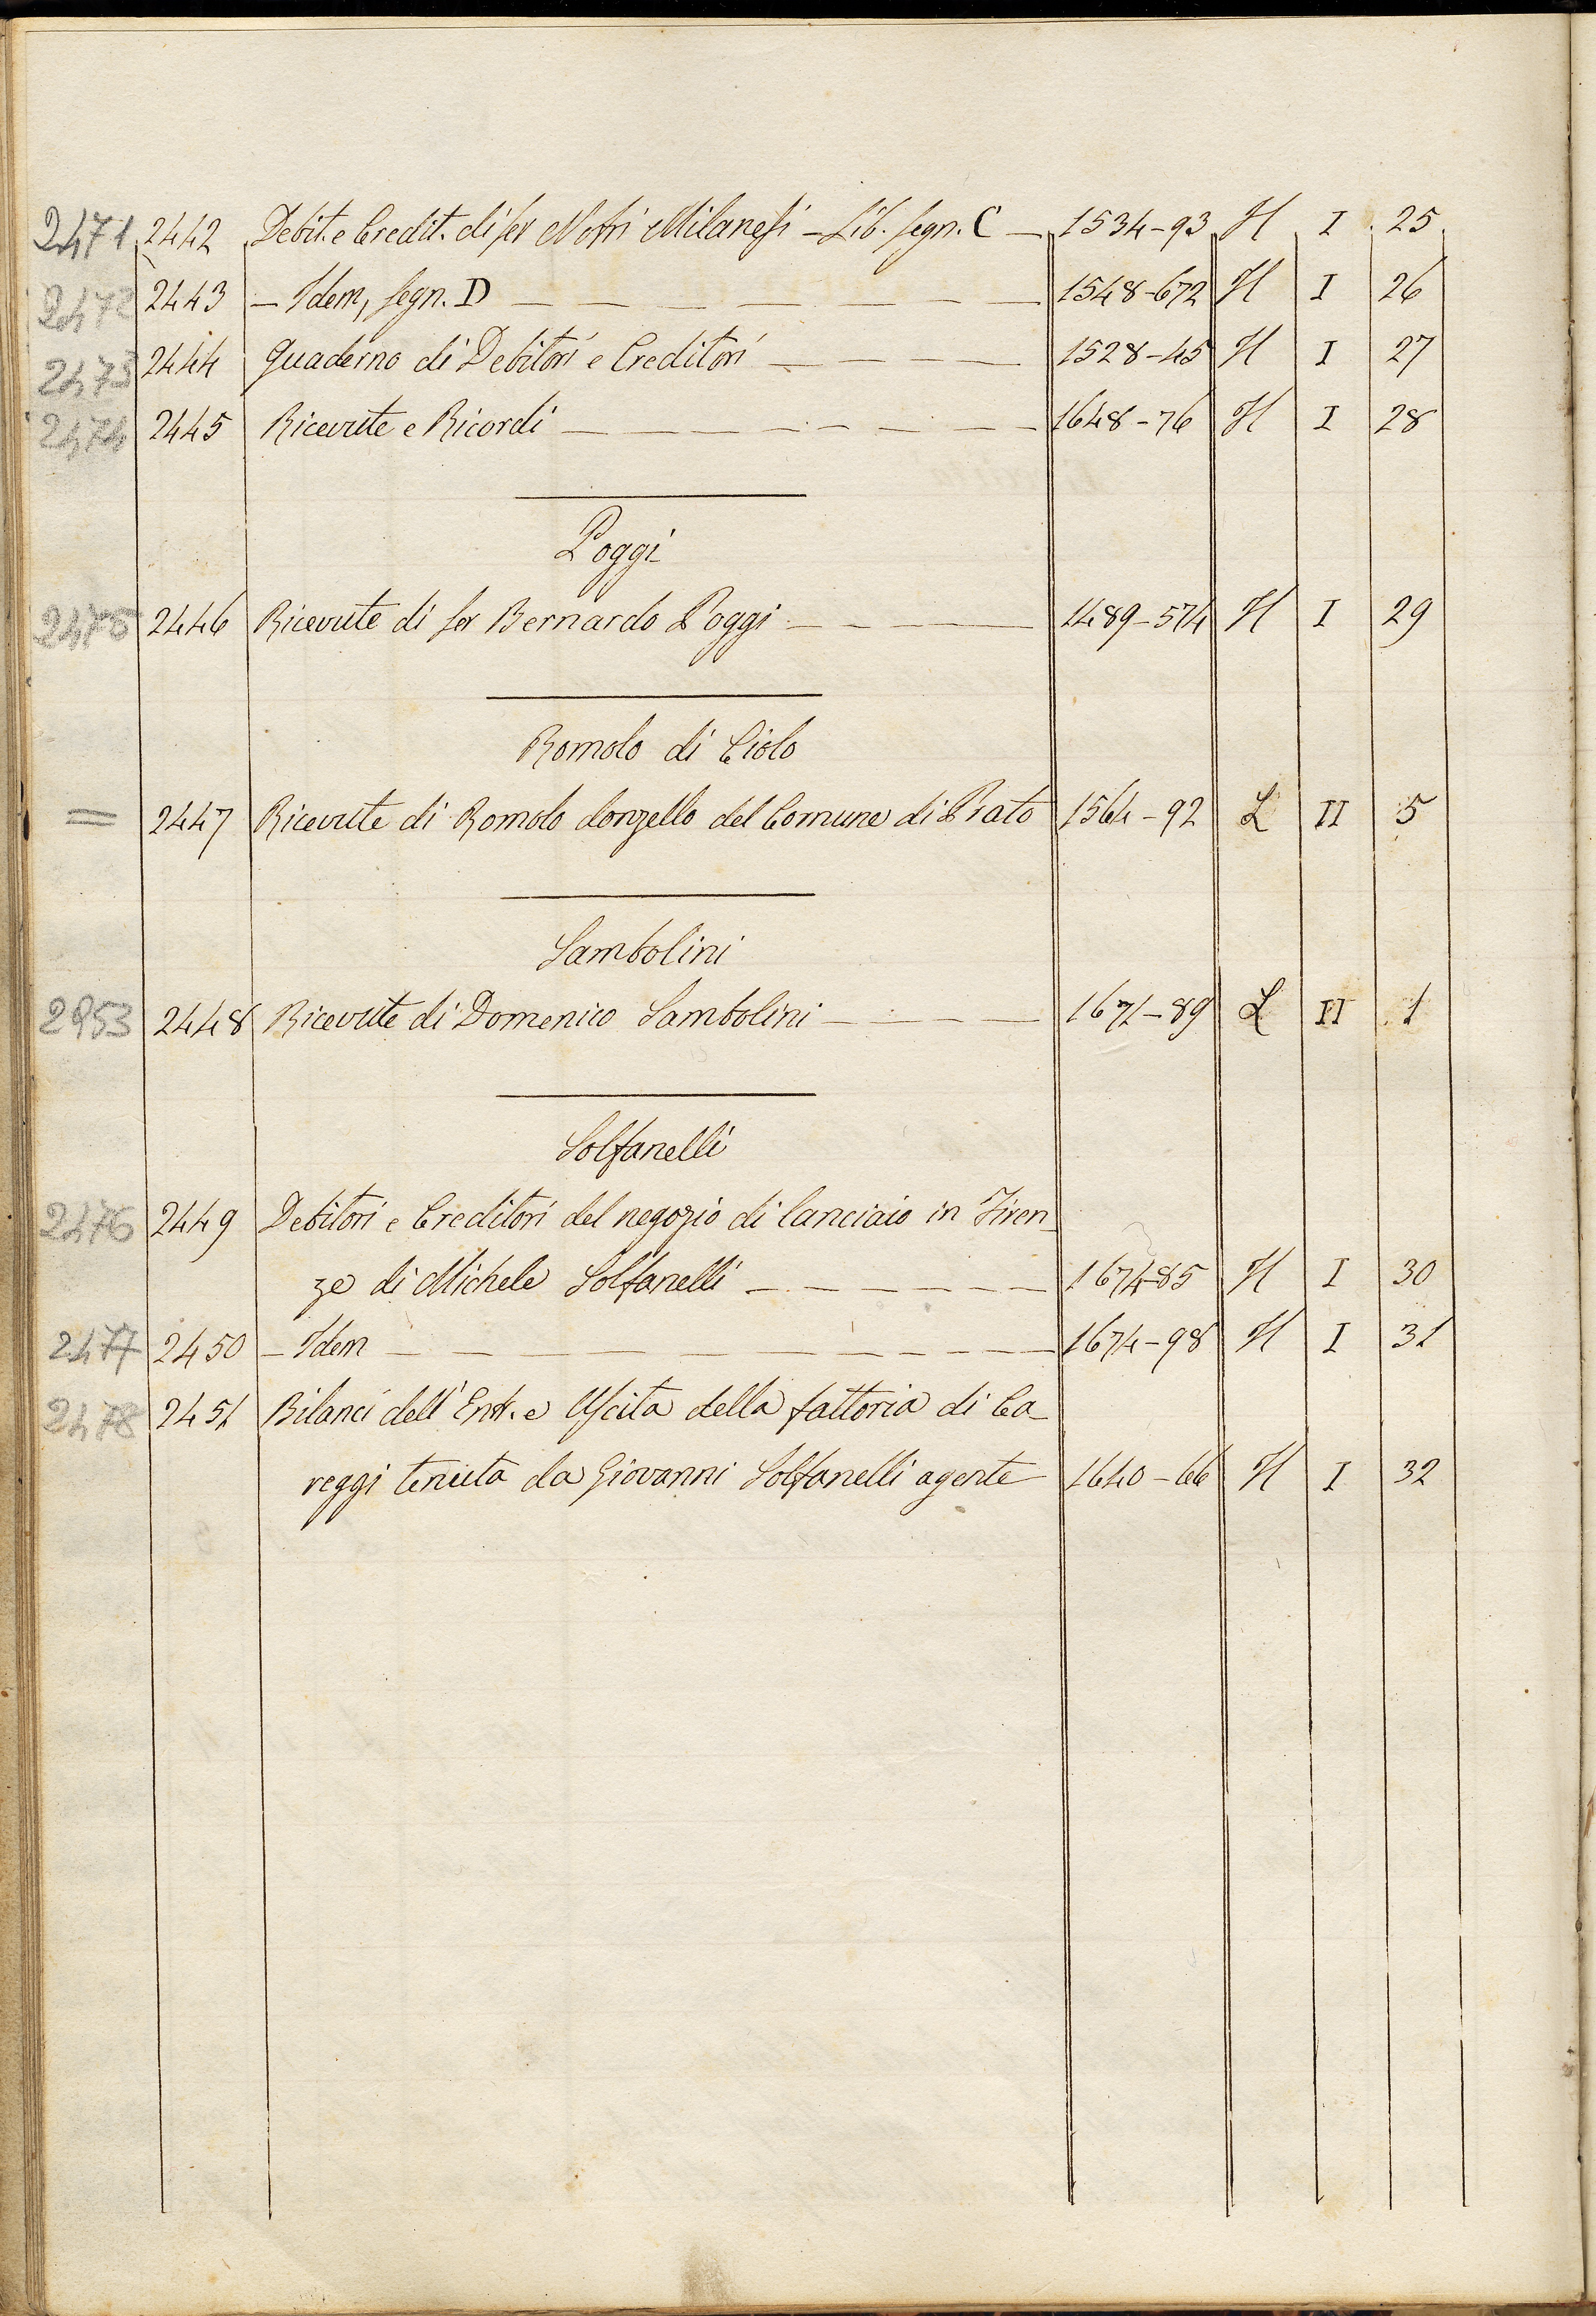 2471 2442 Debit. e Credit. di ser Nofri Milanesi – Lib. segn. C – 1534-93 H I 25
2472 2443 – Idem, segn. D – 1548-672 H I 26
2473 2444 Quaderno di Debitori e Creditori – 1528-45 H I 27
2474 2445 Ricevute e Ricordi – 1648-76 H I 28
Poggi
2475 2446 Ricevute di ser Bernardo Poggi – 1489-574 H I 29
Romolo di Ciolo
= 2447 Ricevute di Romolo donzello del Comune di Prato 1564-92 L II 5
Sambolini
2953 2448 Ricevute di Domenico Sambolini – 1671-89 L II 1
Solfanelli
2476 2449 Debitori e Creditori del negozio di lanciaio in Firen-
ze di Michele Solfanelli – 1674-85 H I 30
2477 2450 – Idem – 1674-98 H I 31
2478 2451 Bilanci dell'Entr. e Uscita della fattoria di Ca-
reggi tenuta da Giovanni Solfanelli agente 1640-66 H I 32